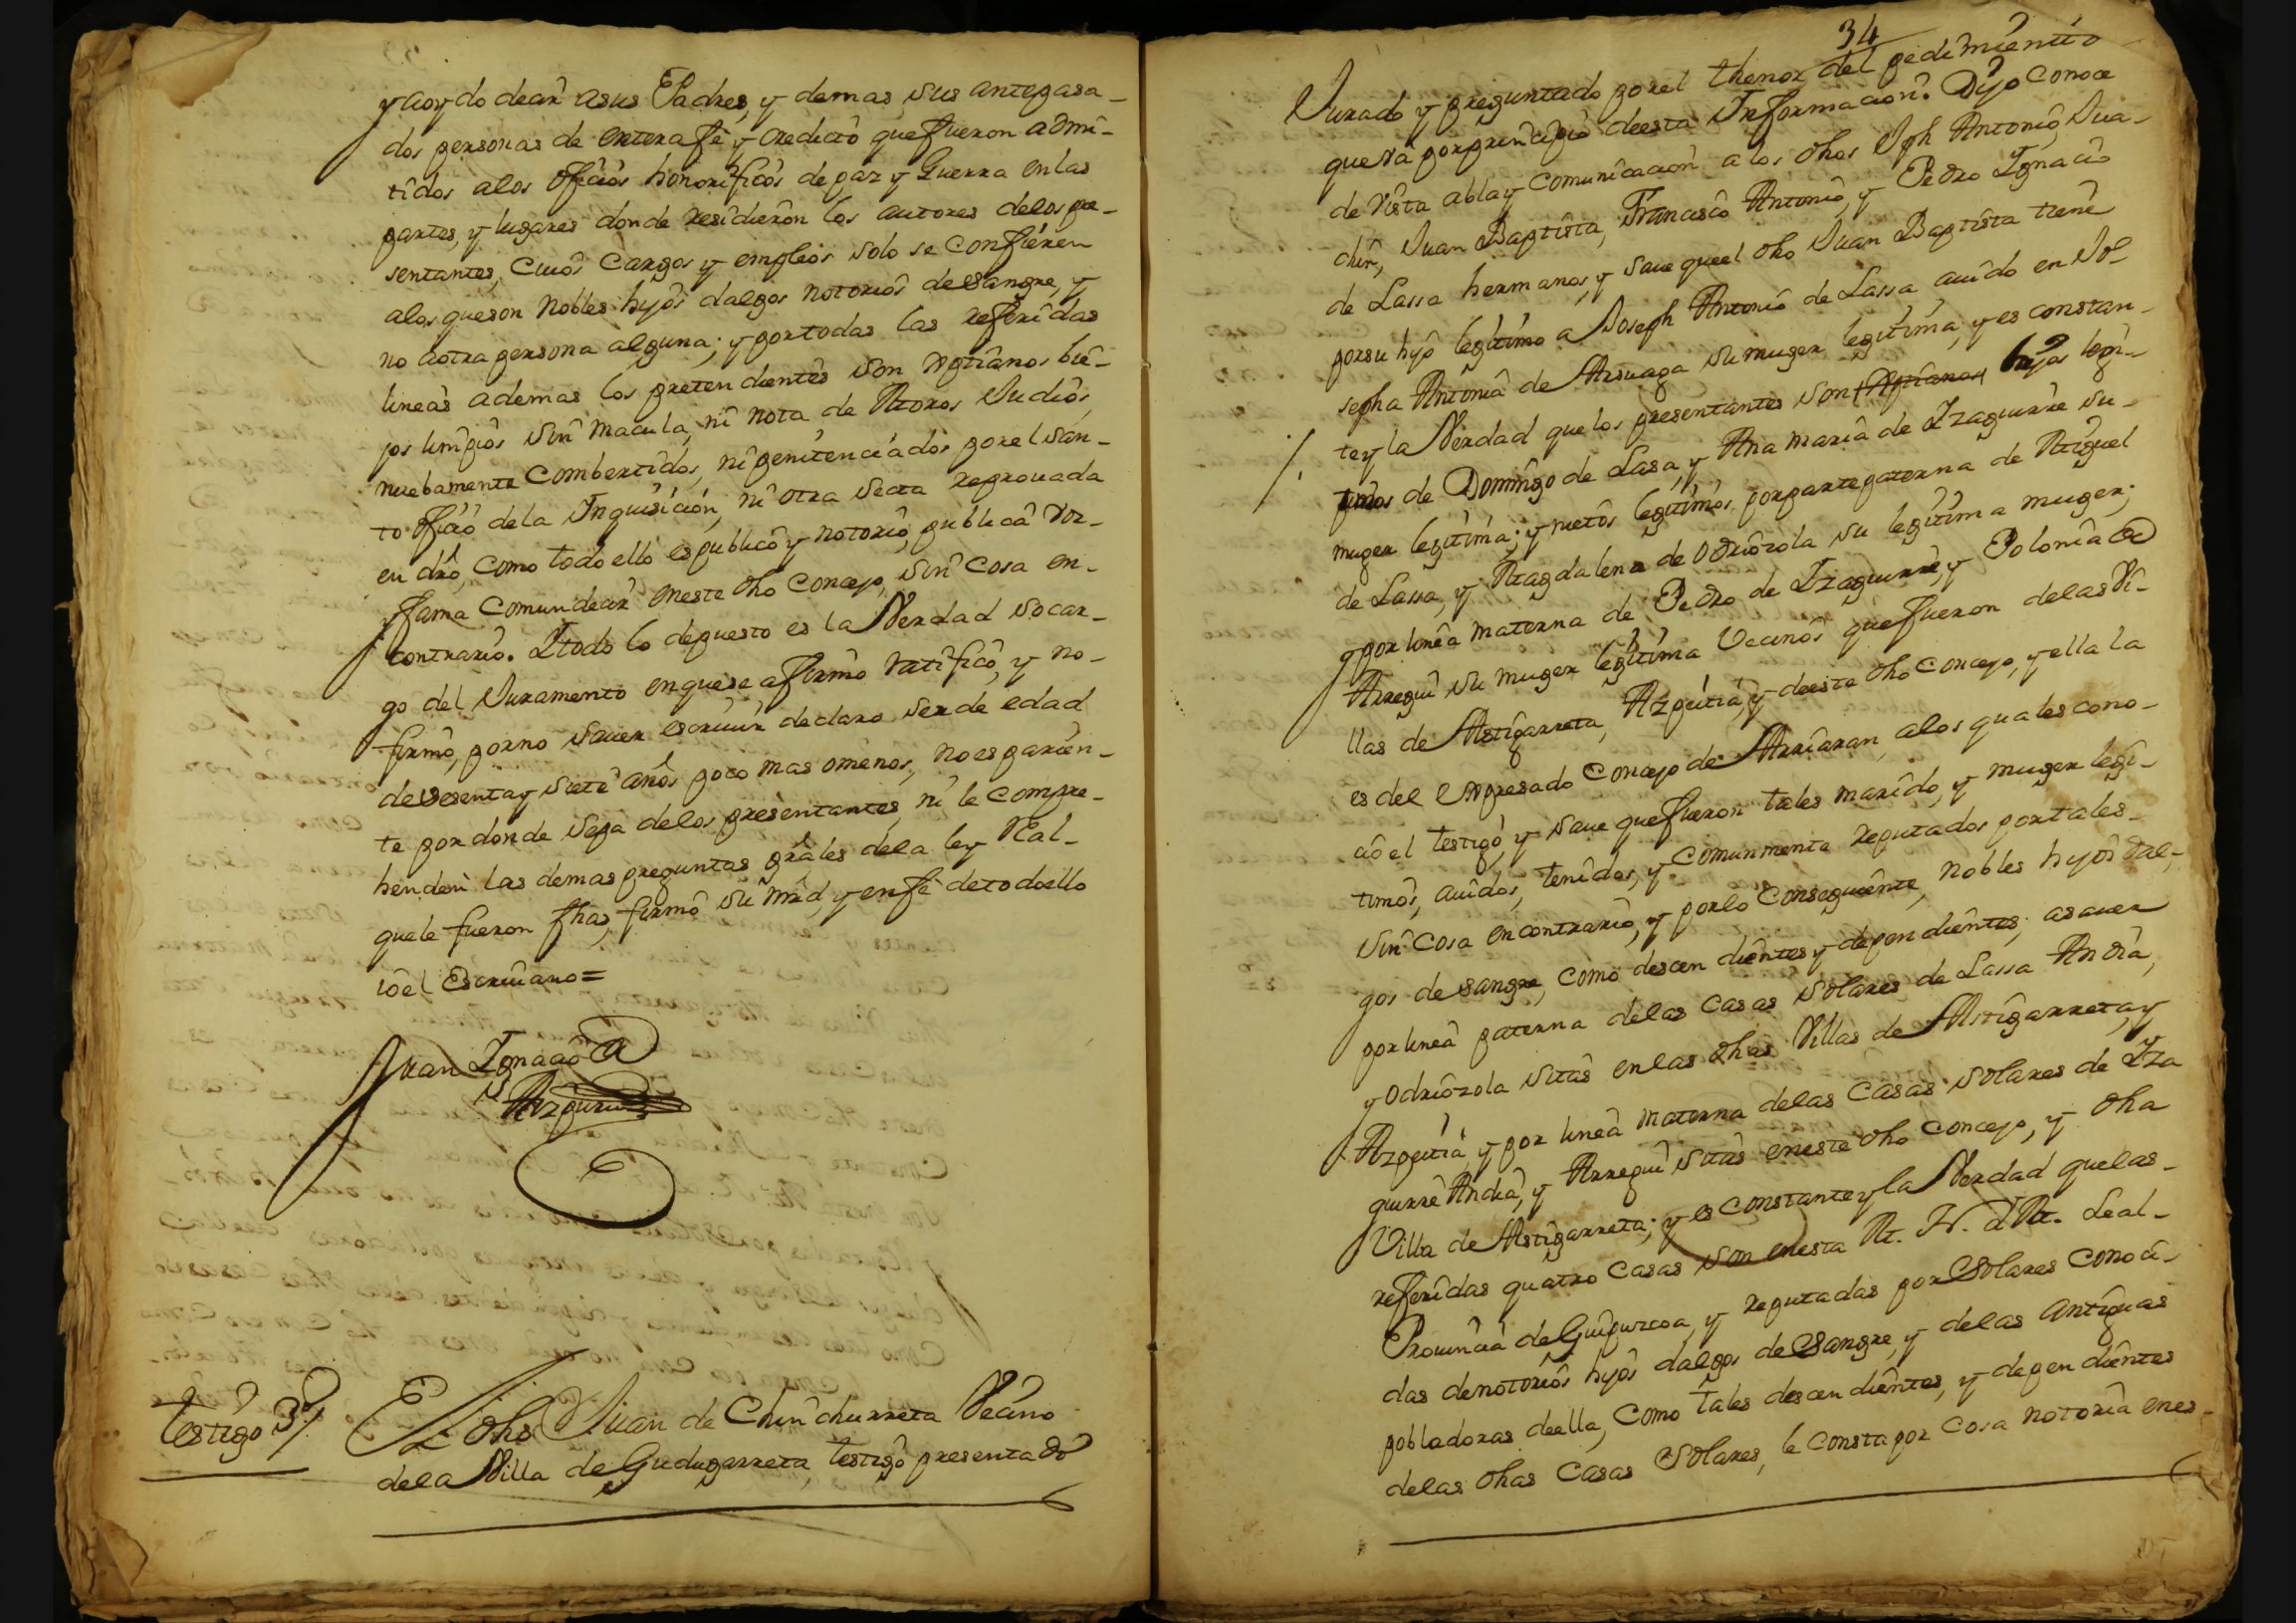 y aoydo decir asus Padres, y demas sus antepasa-
dos personas de entera fe y credicto que fueron admi-
tidos alos oficios honorificos de paz y Guerra en las
partes, y lugares donde residieron los autores delos pre-
sentantes, Cuios Cargos y empleos solo se confieren
alos queson Nobles hijos dalgos notorios desangre, y
no aotra persona alguna; y portodas las referidas
lineas ademas los pretendientes son xptianos bie-
jos limpios sin macula, ni nota de Moros Judios,
nuebamente Combertidos, ni penitenciados por el San-
to oficio dela Inquisicion, ni otra secta reprouada
en dro, como todo ello es publico y notorio, publica voz-
y fama Comun decir en este dho Concejo, sin cosa en-
contrario. Y todo lo depuesto es la Verdad so car-
go del Juramento en que se afirmo ratifico, y no-
firmo, por no sauer escriuir declaro ser de edad
de sesenta y siete años poco mas omenos, no es parien-
te por donde sepa delos presentantes, ni le compre-
henden las demas preguntas grales dela ley Real-
que le fueron fhas, firmo su mrd, y en fe de todo ello
io el Escriuano=
Juan Ignacio de
Azpiriz
Testigo 3º/.
El dho Juan de Chinchurreta Vecino
dela Villa de Gudugarreta, testigo presentado
34
Jurado y preguntado por el thenor del pedimiento
que va por principio deesta Informacion. Dijo conoce
de vista abla y comunicacion a los dhos Jph Antonio, Jua-
chin, Juan Baptista, Francisco Antonio, y Pedro Ignacio
de Lassa hermanos, y saue que el dho Juan Baptista tiene
por su hijo legitimo a Joseph Antonio de Lassa auido en Jo-
sepha Antonia de Arsuaga su muger legitima, y es constan-
/. te y la Verdad que los presentantes son xptianos hijos legi-
timos de Domingo de Lasa, y Ana Maria de Izaguirre su-
muger legitima; y nietos legitimos por parte paterna de Miguel
de Lassa, y Magdalena de Odriozola su legitima muger;
y por linea materna de Pedro de Izaguirre, y Polonia de
Arregui su muger legitima Vecinos que fueron delas Vi-
llas de Astigarreta, Azpeitia, y deeste dho Concejo, y ella la
es del expresado Concejo de Arriaran, alos quales cono-
cio el testigo, y saue que fueron tales marido, y muger legi-
timos, auidos, tenidos, y comunmente reputados por tales-
sin cosa en contrario, y por lo consequente, nobles hijos dal-
gos de sangre, como descendientes y dependientes, asauer
por linea paterna delas casas solares de Lassa Andia,
y Odriozola sitas en las dhas Villas de Astigarreta, y
Azpeitia, y por linea materna delas Casas solares de Iza
guirre Andia, y Arregui sitas eneste dho Concejo, y dha
Villa de Astigarreta; y es constante y la Verdad que las-
referidas quatro casas son enesta M. N. y M. Leal-
Prouincia de Guipuzcoa, y reputadas por Solares conoci-
das denotorios hijos dalgos de Sangre, y delas antiguas
pobladoras deella, como tales descendientes, y dependientes
delas dhas Casas Solares, le consta por cosa notoria enes-